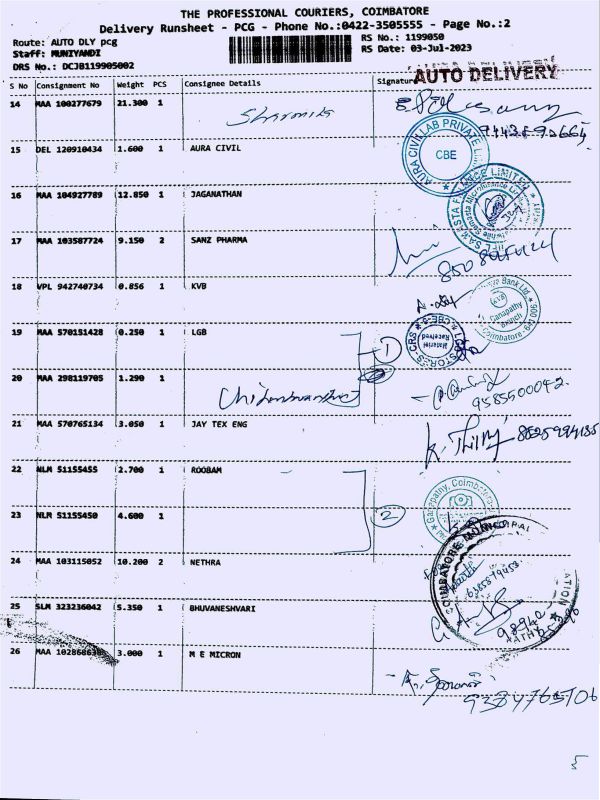 THE PROFESSIONAL COURIERS, COIMBATORE
Delivery Runsheet - PCG - Phone No.:0422-3505555 - Page No.:2
Route: AUTO DLY pcg
RS No.: 1199050
Staff: MUNIYANDI
RS Date: 03-Jul-2023
DRS No.: DCJB119905002
AUTO DELIVERY
S No Consignment No Weight PCS Consignee Details Signature
14 MAA 100277679 21.300 1 Sharmila
15 DEL 120910434 1.600 1 AURA CIVIL
AURA CIVIL LAB PRIVATE LIMITED
CBE
16 MAA 104927789 12.850 1 JAGANATHAN
17 MAA 103587724 9.150 2 SANZ PHARMA
18 VPL 942740734 0.856 1 KVB
KVB
Ganapathy
Branch
Coimbatore- 641 006
19 MAA 570151428 0.250 1 LGB
1
LGB STORES-CRS CBE-6
Material
Received
20 MAA 298119705 1.290 1
9585500042.
21 MAA 570765134 3.050 1 JAY TEX ENG
22 NLM 51155455 2.700 1 ROOBAM
Ganapathy, Coimbatore
23 NLM 51155450 4.600 1
2
24 MAA 103115052 10.200 2 NETHRA
COIMBATORE MUNICIPAL
25 SLM 323236042 5.350 1 BHUVANESHVARI
26 MAA 3.000 1 M E MICRON
9384765106
5